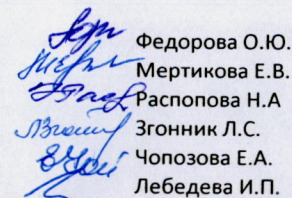 Федорова О.Ю.
Мертикова Е.В.
Распопова Н.А
Згонник Л.С.
Чопозова Е.А.
Лебедева И.П.